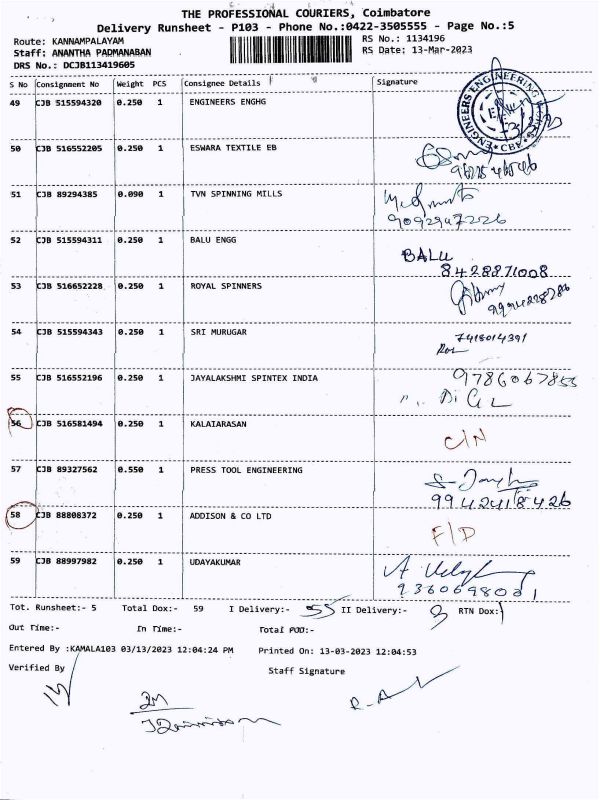 THE PROFESSIONAL COURIERS, Coimbatore
Delivery Runsheet - P103 - Phone No.:0422-3505555 - Page No.:5
Route: KANNAMPALAYAM
RS No.: 1134196
Staff: ANANTHA PADMANABAN
RS Date: 13-Mar-2023
DRS No.: DCJB113419605
S No Consignment No Weight PCS Consignee Details Signature
49 CJB 515594320 0.250 1 ENGINEERS ENGHG
ENGINEERS ENGINEERING
CBE
50 CJB 516552205 0.250 1 ESWARA TEXTILE EB
51 CJB 89294385 0.090 1 TVN SPINNING MILLS
9092947226
52 CJB 515594311 0.250 1 BALU ENGG
BALU
8428871008
53 CJB 516652228 0.250 1 ROYAL SPINNERS
9994228786
54 CJB 515594343 0.250 1 SRI MURUGAR
7418014391
55 CJB 516552196 0.250 1 JAYALAKSHMI SPINTEX INDIA
9786067855
56 CJB 516581494 0.250 1 KALAIARASAN
C/N
57 CJB 89327562 0.550 1 PRESS TOOL ENGINEERING
9942418426
58 CJB 88808372 0.250 1 ADDISON & CO LTD
F/D
59 CJB 88997982 0.250 1 UDAYAKUMAR
9360698001
Tot. Runsheet:- 5 Total Dox:- 59 I Delivery:- 55 II Delivery:- 3 RTN Dox:- 1
Out Time:- In Time:- Total POD:-
Entered By :KAMALA103 03/13/2023 12:04:24 PM Printed On: 13-03-2023 12:04:53
Verified By Staff Signature